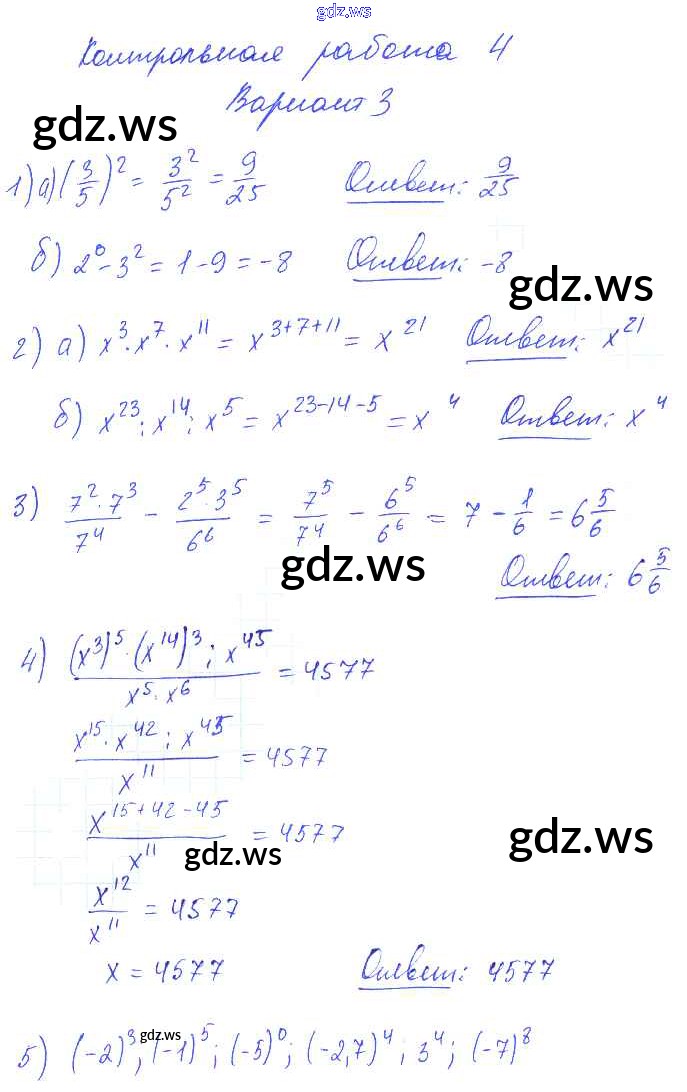 gdz.ws
Контрольная работа 4
Вариант 3
gdz.ws
1) а) (3/5)² = 3²/5² = 9/25 Ответ: 9/25
б) 2⁰ - 3² = 1 - 9 = -8 Ответ: -8
gdz.ws
2) а) x³ · x⁷ · x¹¹ = x³⁺⁷⁺¹¹ = x²¹ Ответ: x²¹
б) x²³ : x¹⁴ : x⁵ = x²³⁻¹⁴⁻⁵ = x⁴ Ответ: x⁴
3) 7² · 7³/7⁴ - 2⁵ · 3⁵/6⁶ = 7⁵/7⁴ - 6⁵/6⁶ = 7 - 1/6 = 6 5/6
gdz.ws
Ответ: 6 5/6
4) (x³)⁵ · (x¹⁴)³ : x⁴⁵/x⁵ · x⁶ = 4577
x¹⁵ · x⁴² : x⁴⁵/x¹¹ = 4577
x¹⁵⁺⁴²⁻⁴⁵/x¹¹ = 4577
gdz.ws
gdz.ws
x¹²/x¹¹ = 4577
x = 4577 Ответ: 4577
gdz.ws
5) (-2)³; (-1)⁵; (-5)⁰; (-2,7)⁴; 3⁴; (-7)⁸